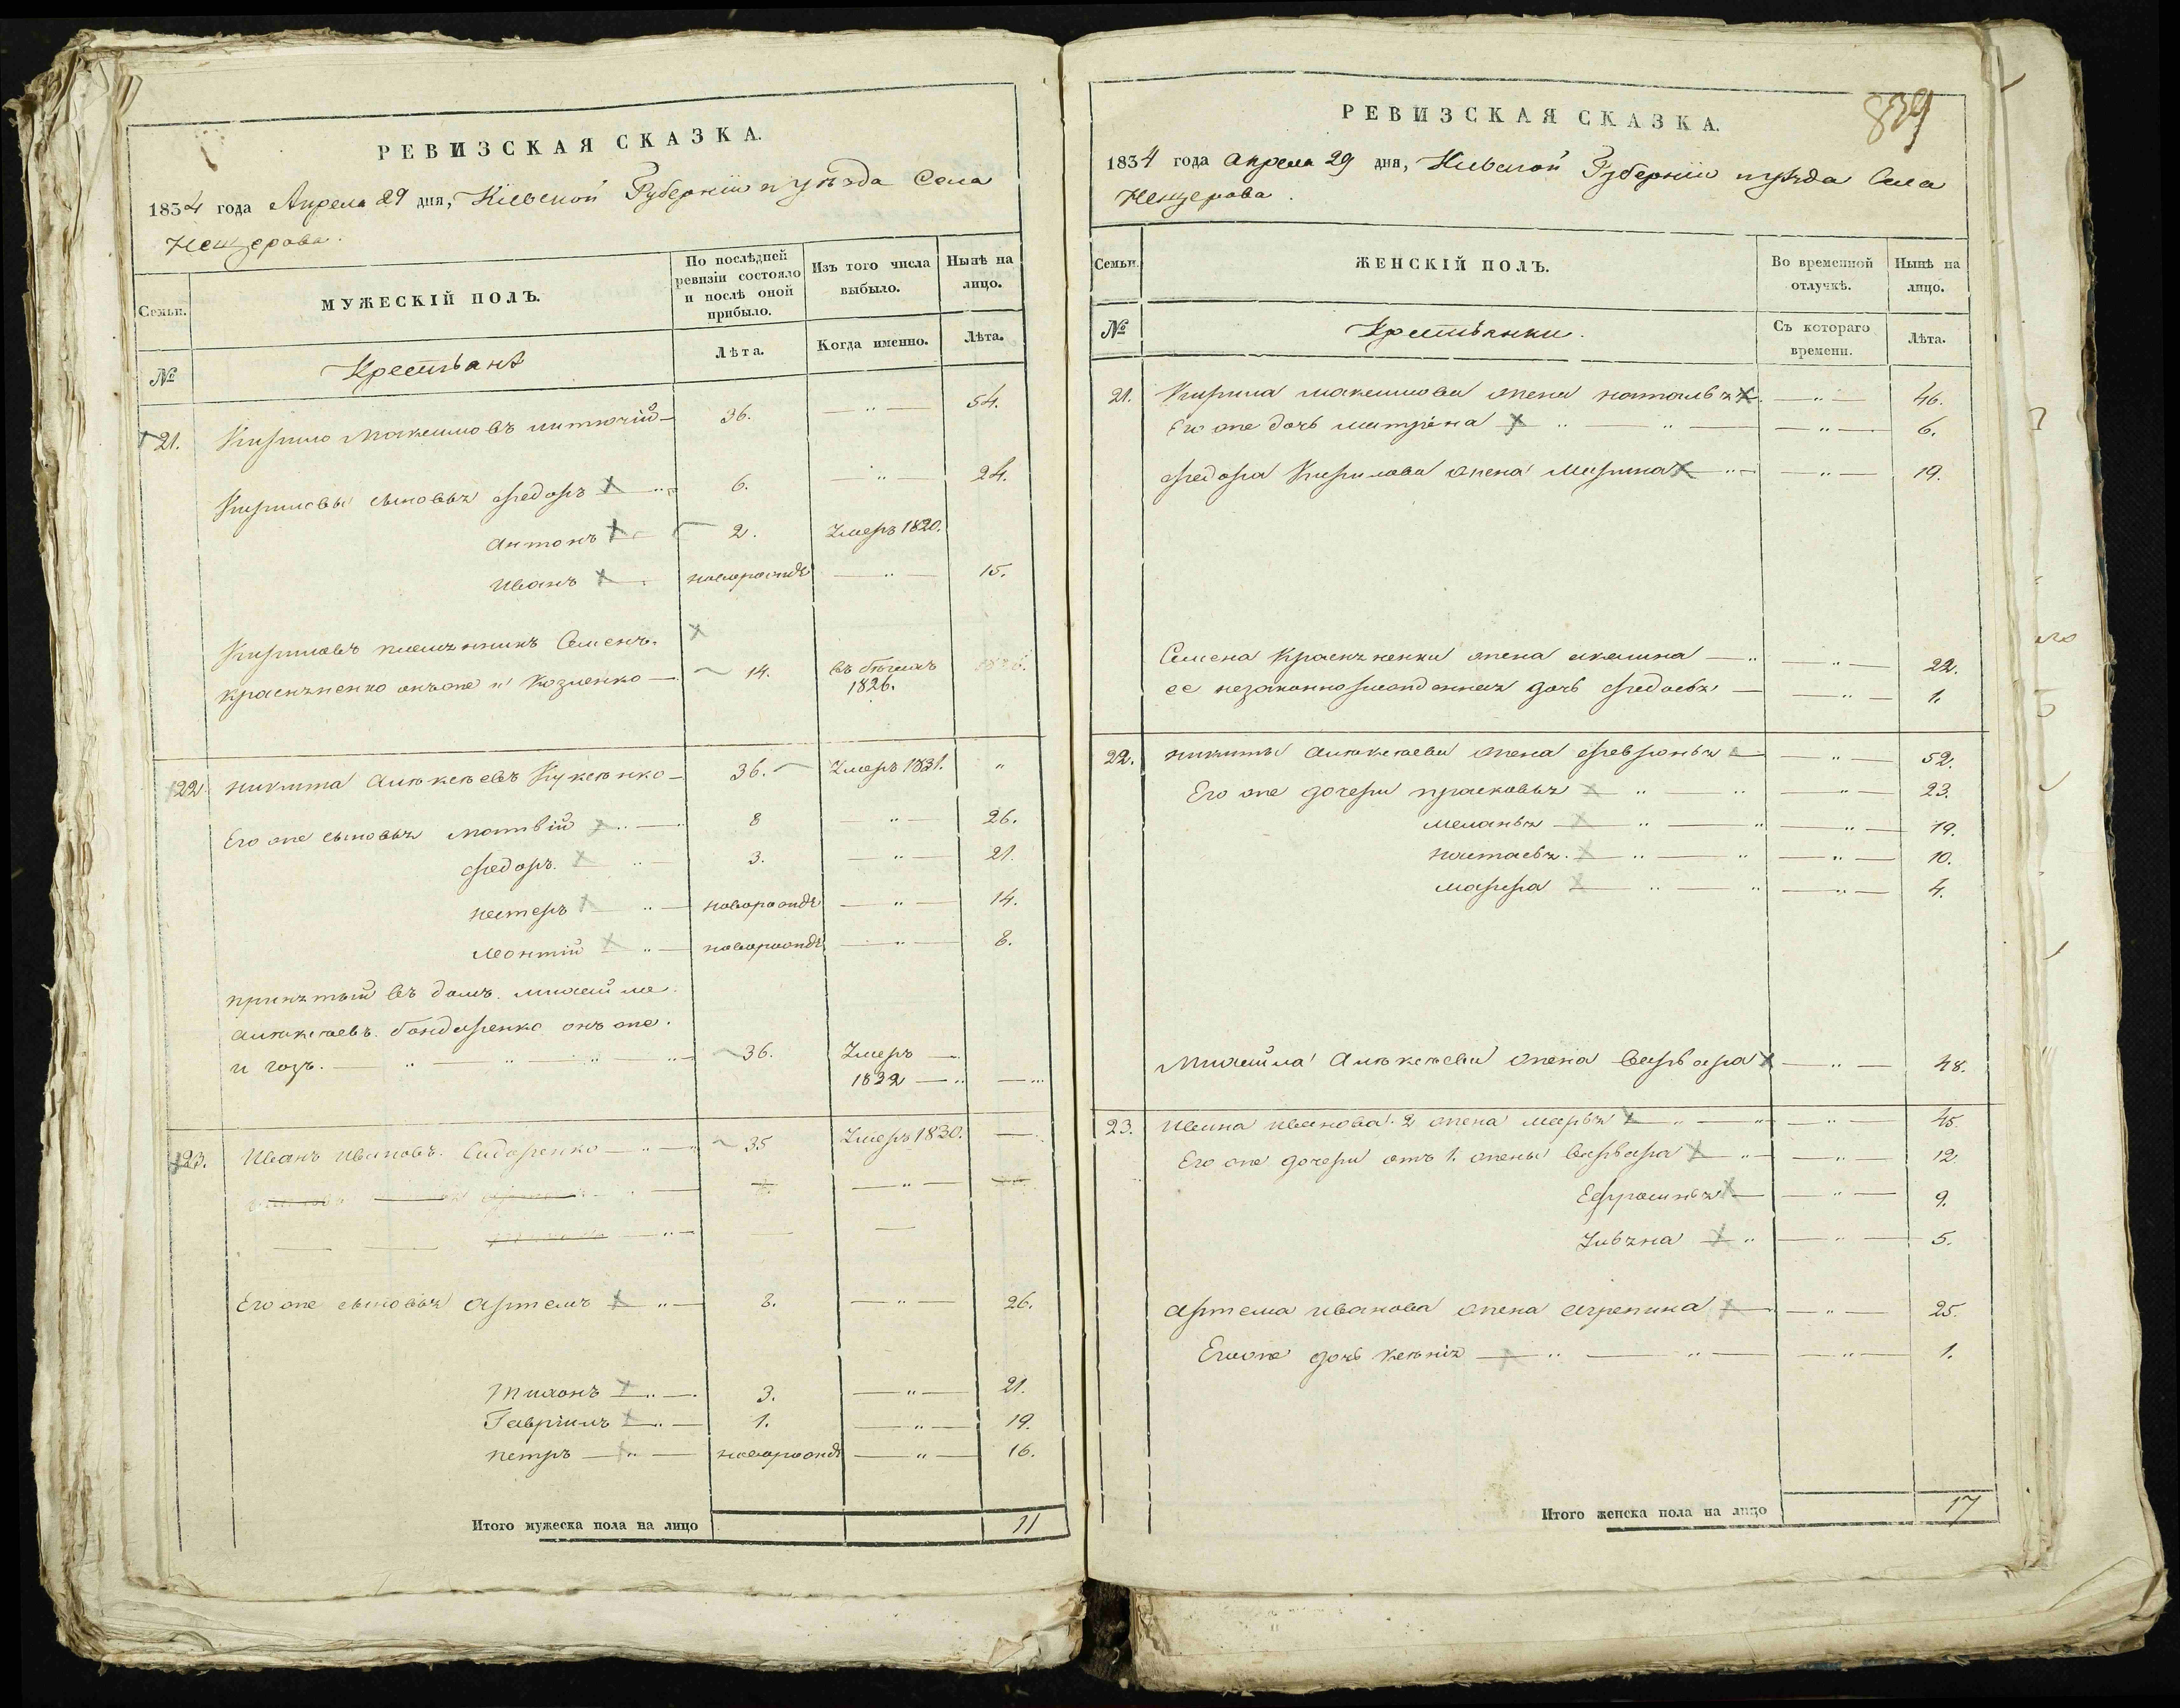 РЕВИЗСКАЯ СКАЗКА.
1834 года Апреля 29 дня, Кіевской Губерніи и уѣзда Села
Нещерова.
Семьи.
МУЖЕСКІЙ ПОЛЪ.
По послѣдней ревизіи состояло и послѣ оной прибыло.
Изъ того числа выбыло.
Нынѣ на лицо.
№
Крестьянѣ
Лѣта.
Когда именно.
Лѣта.
21. Кирило Макеимовъ 36. 54.
Кириловы сыновья Федоръ 6. 24.
Антонъ 2. Умеръ 1820.
Иванъ новорожде 15.
Кириловъ племянникъ Семенъ
онъже и Козленко 14. въ бѣгахъ
1826.
22 никита Алѣкѣевъ 36. Умеръ 1831.
Его же сыновья матвій 8 26.
Федоръ. 3. 21.
нестеръ новорожде 14.
леонтій новорожде 8.
принятый въ домъ. михайла
Алѣкѣевъ. бондаренко онъ же.
и 36. Умеръ
1832
23. Иванъ Ивановъ. Сидоренко 35 Умеръ 1830.
Его же сыновья Артемъ 8. 26.
Тихонъ 3. 21.
Гавріилъ 1. 19.
петръ новорожд 16.
Итого мужеска пола на лицо 11
839
РЕВИЗСКАЯ СКАЗКА.
1834 года Апреля 29 дня, Кіевской Губерніи и уѣзда Села
Нещерова.
Семьи.
ЖЕНСКІЙ ПОЛЪ.
Во временной отлучкѣ.
Нынѣ на лицо.
№
Крестьянки.
Съ котораго времени.
Лѣта.
21. Кирила макеимова жена наталья 46.
Его же дочь матріона 6.
Федора Кирилова жена Марина 19.
Семена жена акилина 22.
ее незаконнорожденная дочь Федосья 1.
22. никиты Алѣкѣева жена Февронья 52.
Его же дочери прасковья 23.
меланья 19.
настасья. 10.
марфа 4.
Михайла Алѣкѣева жена Варвара 48.
23. Ивана Иванова 2 жена марья 45.
Его же дочери отъ 1. жены Варвара 12
Ефросинья 9.
Ульяна 5.
Артема Иванова жена агрепина 25.
Егоже дочь Ксѣнія 1.
Итого женска пола на лицо 17